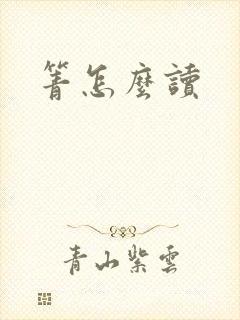 箐怎麽讀
青山紫雲